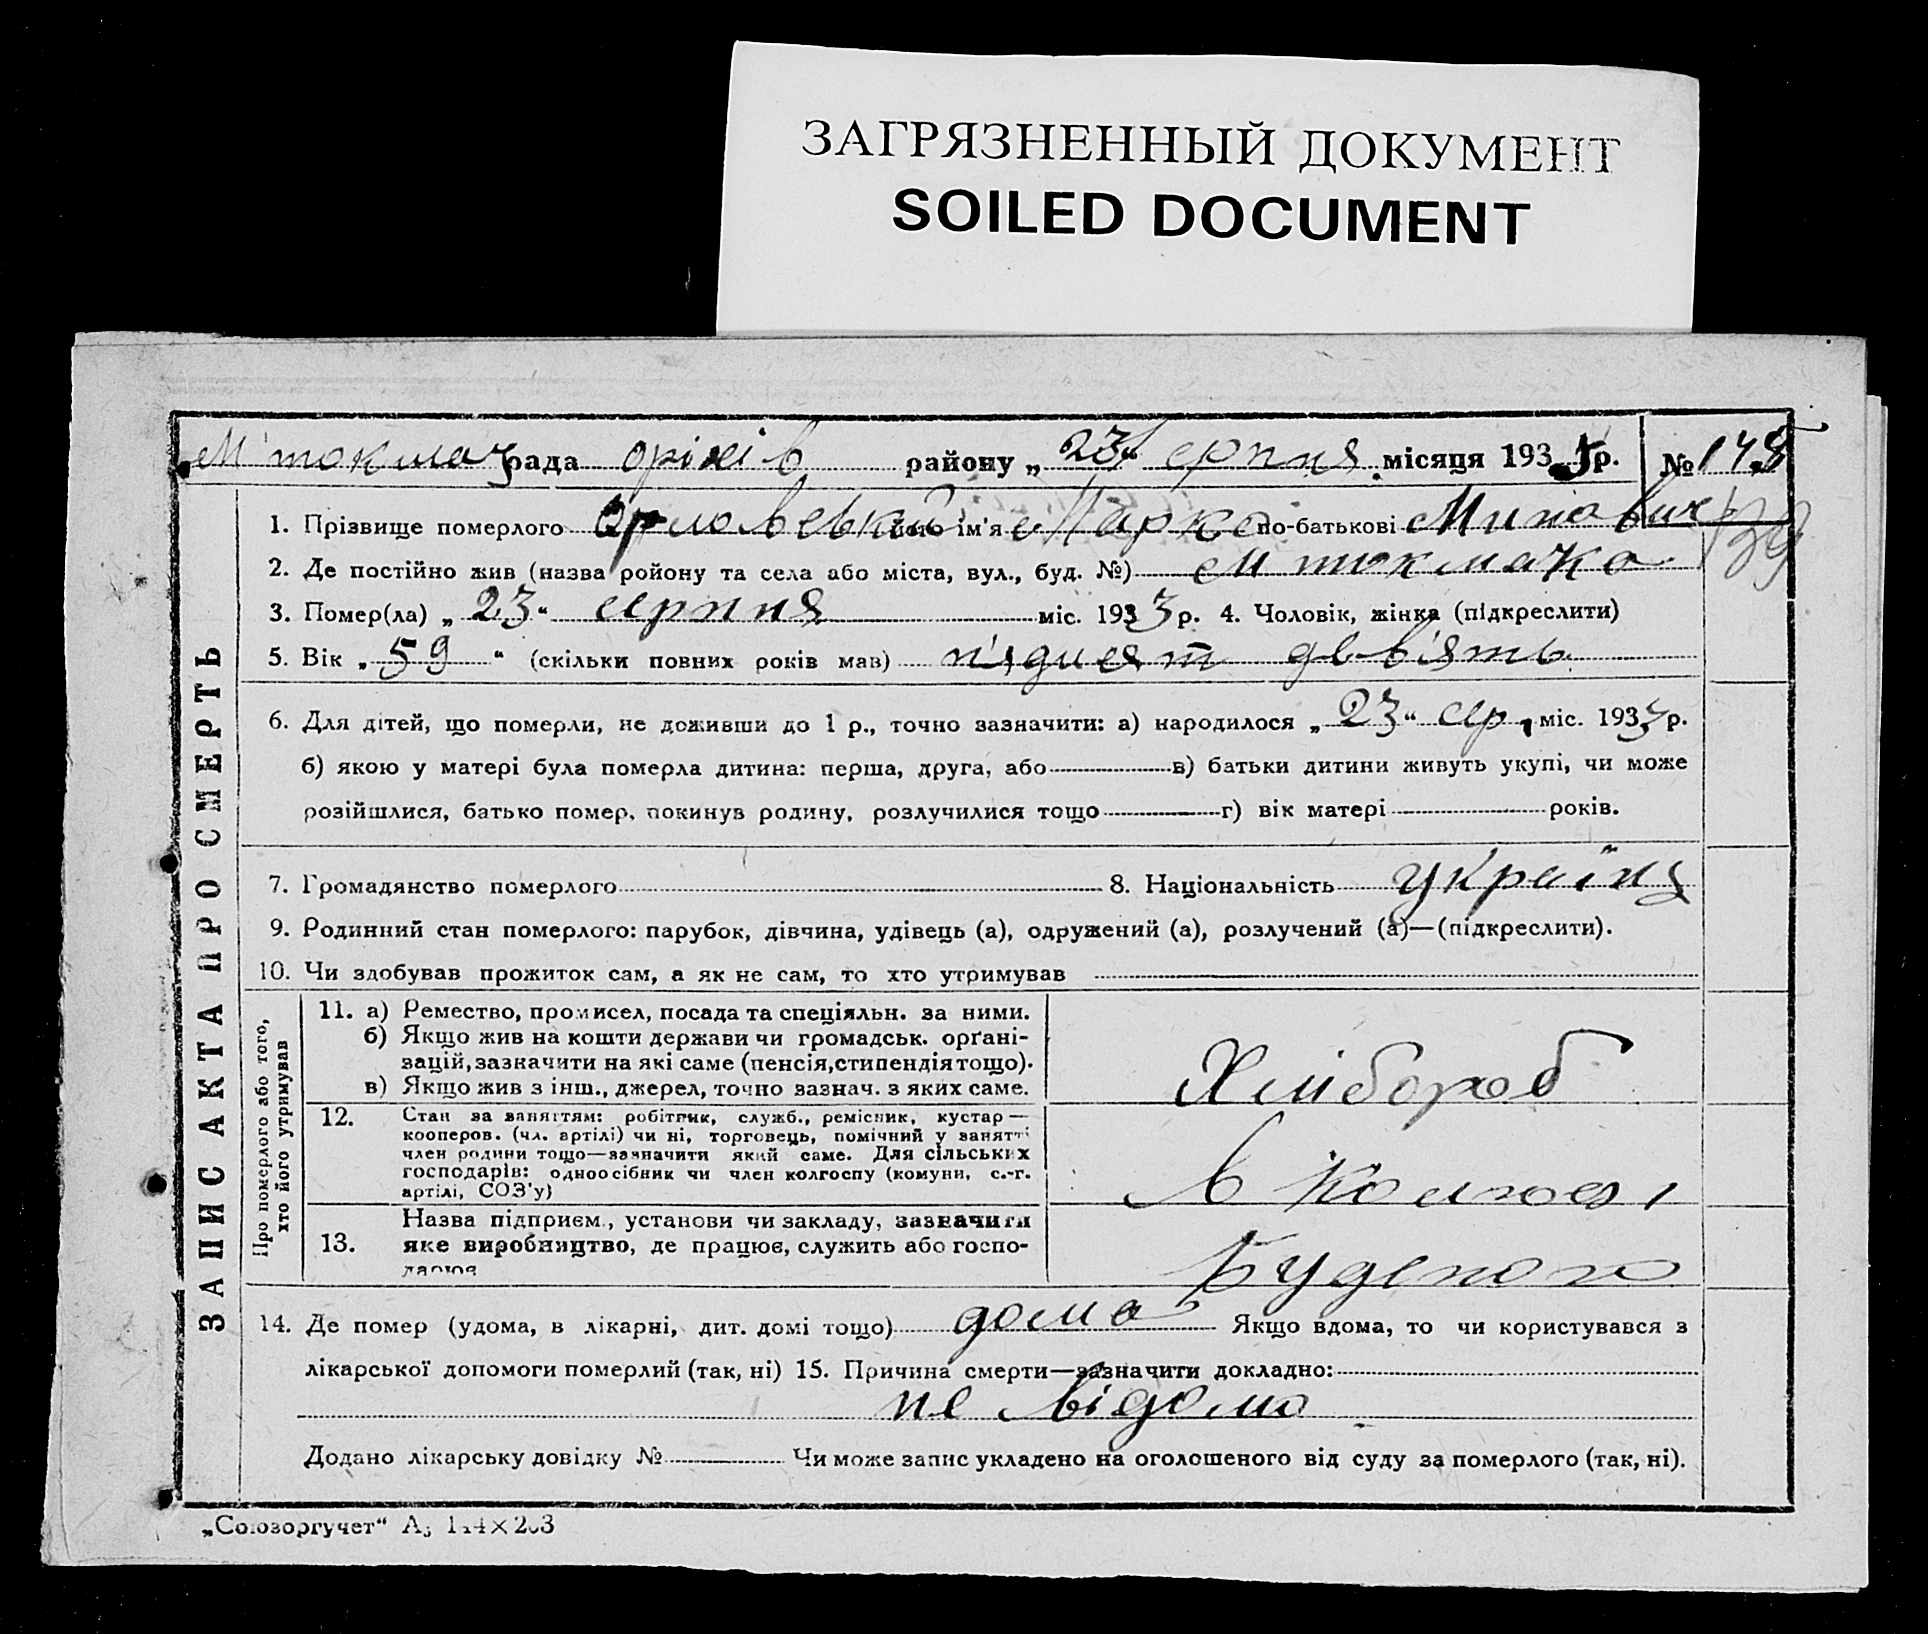 ЗАГРЯЗНЕННЫЙ ДОКУМЕНТ
SOILED DOCUMENT
М токмач рада оріхів району „ 23 " серпня місяця 193 р. № 148
139
1. Прізвище померлого Орловський його ім'я Марко по-батькові Минович
2. Де постійно жив (назва ройону та села або міста, вул., буд. №) М токмачка
3. Помер(ла) „ 23 " серпня міс. 1933 р. 4. Чоловік, жінка (підкреслити)
5. Вік „ 59 " (скільки повних років мав) п'ядисят дев'ять
6. Для дітей, що померли, не доживши до 1 р., точно зазначити: а) народилося „ 23 " сер, міс. 1933 р.
б) якою у матері була померла дитина: перша, друга, або в) батьки дитини живуть укупі, чи може
розійшлися, батько помер, покинув родину, розлучилися тощо г) вік матері років.
7. Громадянство померлого 8. Національність україну
9. Родинний стан померлого: парубок, дівчина, удівець (а), одружений (а), розлучений (а)—(підкреслити).
10. Чи здобував прожиток сам, а як не сам, то хто утримував
ЗАПИС АКТА ПРО СМЕРТЬ
Про померлого або того,
хто його утримував
11. а) Ремество, промисел, посада та спеціяльн. за ними.
б) Якщо жив на кошти держави чи громадськ. орґані-
зацій, зазначити на які саме (пенсія, стипендія тощо).
в) Якщо жив з інш., джерел, точно зазнач. з яких саме.
Хлібороб
12. Стан за заняттям: робітник, служб., ремісник, кустар —
кооперов. (чл. артілі) чи ні, торговець, помічний у занятті
член родини тощо—зазначити який саме. Для сільських
господарів: одноосібник чи член колгоспу (комуни, с.-г.
артілі, СОЗ'у)
в колгозі
13. Назва підприєм., установи чи закладу, зазначити
яке виробництво, де працює, служить або госпо-
дарює
Буденого
14. Де помер (удома, в лікарні, дит. домі тощо) дома Якщо вдома, то чи користувався з
лікарської допомоги померлий (так, ні) 15. Причина смерти—зазначити докладно:
не відомо
Додано лікарську довідку № Чи може запис укладено на оголошеного від суду за померлого (так, ні).
„Союзоргучет"